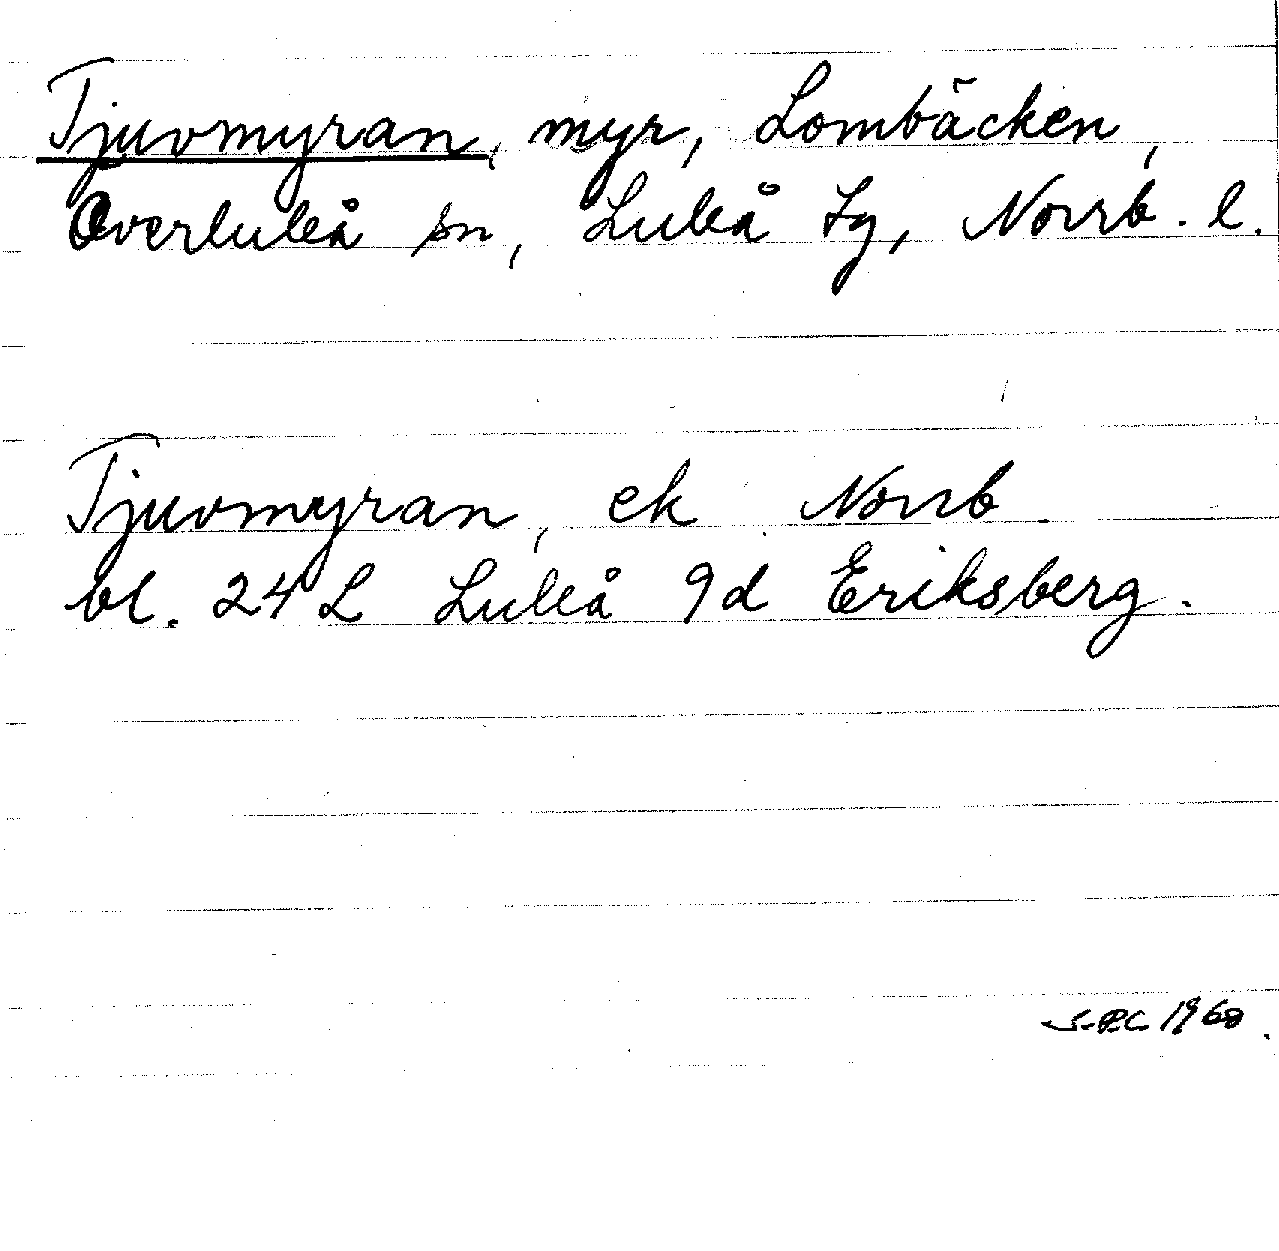 Tjuvmyran, myr, Lombäcken,
Överluleå sn, Luleå tg, Norrb. l.
Tjuvmyran, ek Norrb
bl. 24 L Luleå 9d Eriksberg.
1968